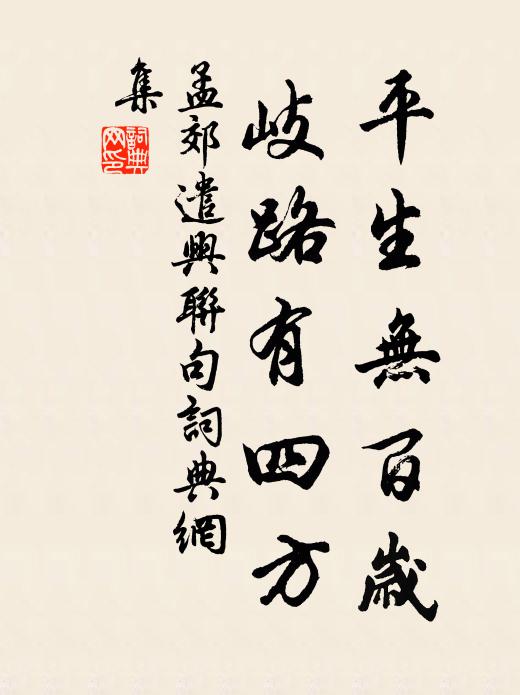 平生無百歲
岐路有四方
孟郊遣興聯句詞典網
集
詞典
網印